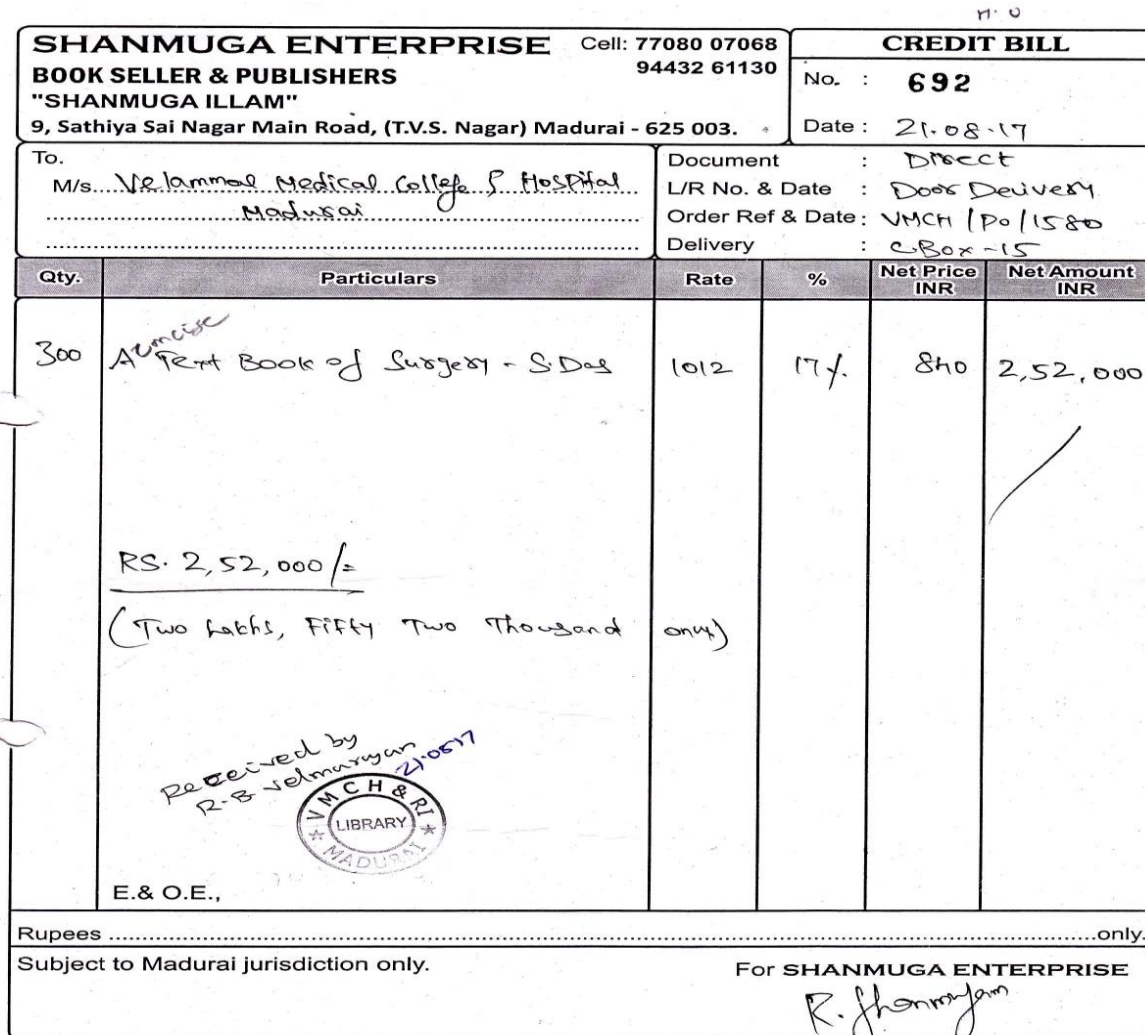 M. O
SHANMUGA ENTERPRISE Cell: 77080 07068
94432 61130
BOOK SELLER & PUBLISHERS
"SHANMUGA ILLAM"
9, Sathiya Sai Nagar Main Road, (T.V.S. Nagar) Madurai - 625 003.
CREDIT BILL
No. : 692
Date : 21.08.17
To.
M/s. Velammal Medical College & Hospital
Madurai
Document : Direct
L/R No. & Date : Door Delivery
Order Ref & Date : VMCH / PO / 1580
Delivery : CBox - 15
Qty. Particulars Rate % Net Price INR Net Amount INR
300 A Concise Text Book of Surgery - S. Das 1012 17% 840 2,52,000
RS. 2,52,000/=
(Two Lakhs, Fifty Two Thousand only)
Received by
R.B Velmurugan
VMCH & RI
LIBRARY
MADURAI
E.& O.E.,
Rupees only.
Subject to Madurai jurisdiction only.
For SHANMUGA ENTERPRISE
R. Shanmugam